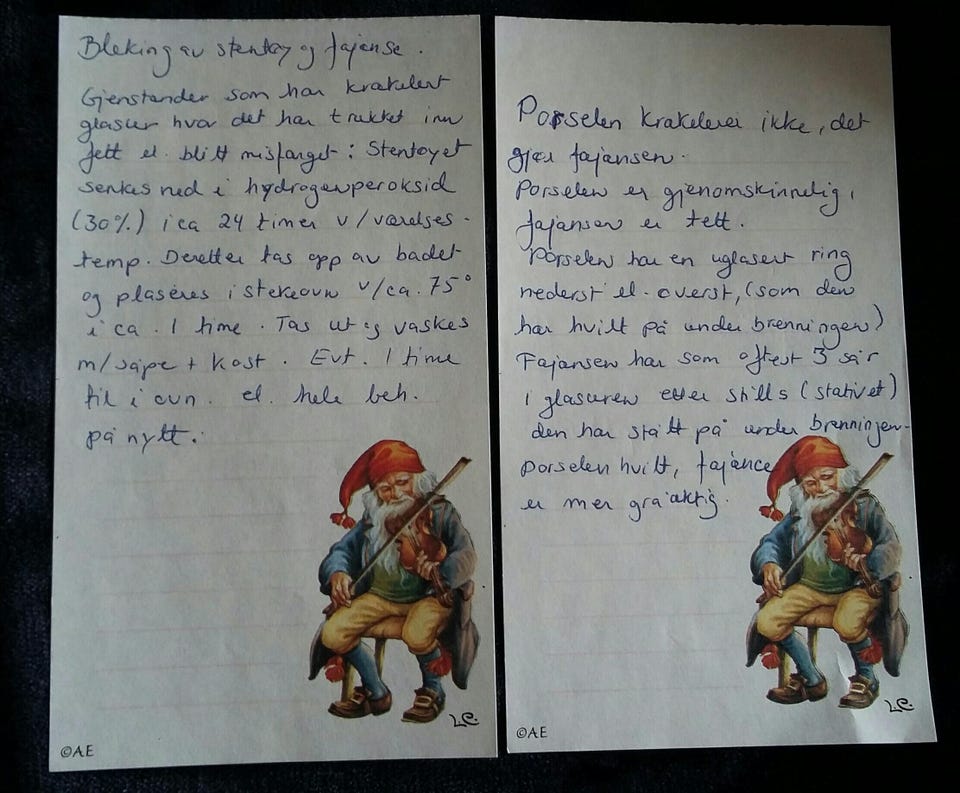 Bleking av stentøy og fajanse.
Gjenstander som har krakelert
glasur hvor det har trukket inn
fett el. blitt misfarget: Stentøyet
senkes ned i hydrogenperoksid
(30%) i ca 24 timer v/værelses-
temp. Deretter tas opp av badet
og plaseres i stekeovn v/ca. 75°
i ca. 1 time. Tas ut og vaskes
m/såpe + kost. Evt. 1 time
til i ovn. el. hele beh.
på nytt.
©AE
L.C.
Porselen krakelerer ikke, det
gjør fajansen.
Porselen er gjenomskinnelig,
fajansen er tett.
Porselen har en uglasert ring
nederst el. øverst, (som den
har hvilt på under brenningen)
Fajansen har som oftest 3 sår
i glasuren etter stills (stativet)
den har stått på under brenningen.
porselen hvitt, fajance
er mer gråaktig.
©AE
L.C.